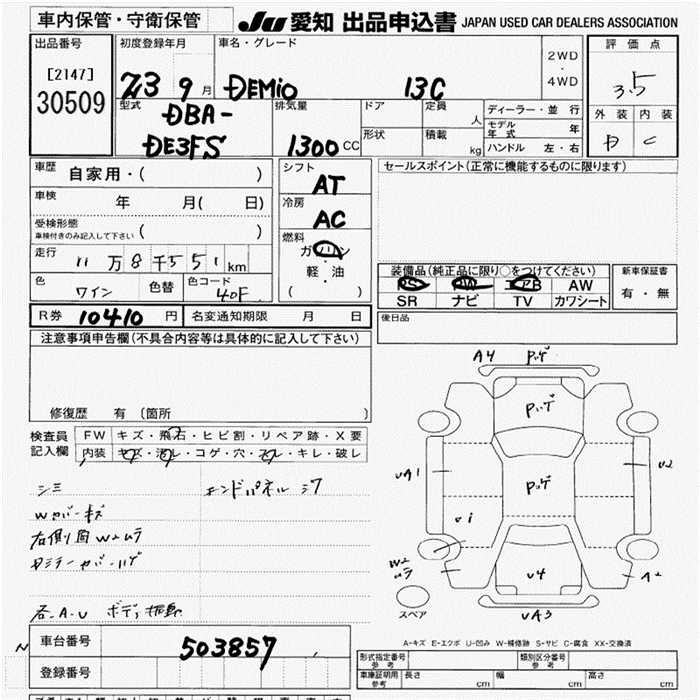 車内保管・守衛保管
JU 愛知 出品申込書 JAPAN USED CAR DEALERS ASSOCIATION
出品番号
[2147]
30509
初度登録年月
23 9 月
車名・グレード
DEMIO 13C
2WD
・
4WD
評価点
3.5
外装 内装
C
型式
DBA-
DE3FS
排気量
1300 CC
ドア
定員
人
形状
積載
kg
ディーラー・並行
モデル年式 年
ハンドル 左・右
車歴 自家用・( )
車検 年 月( 日)
受検形態
車検付きのみ記入して下さい ( )
走行 11万8千551 km
色 ワイン 色替
色コード 40F
シフト
AT
冷房
AC
燃料
ガソリン
軽・油
( )
セールスポイント(正常に機能するものに限ります)
装備品(純正品に限り○をつけてください)
PS PW エアB AW
SR ナビ TV カワシート
新車保証書
有・無
R券 10410 円
名変通知期限 月 日
後日品
注意事項申告欄(不具合内容等は具体的に記入して下さい)
修復歴 有 (箇所 )
検査員
記入欄
FW キズ・飛石・ヒビ割・リペア跡・X要
内装 キズ・汚レ・コゲ・穴・スレ・キレ・破レ
シミ
エンドパネル
Wカバーキズ
右側面W2ムラ
各-A-U ボディ
A4
UA1
U2
U1
W2
ムラ
A2
U4
UA3
スペア
A-キズ E-エクボ U-凹み W-補修跡 S-サビ C-腐食 XX-交換済
車台番号 503857
登録番号
形式指定番号
参考
類別区分番号
参考
車庫証明用
参考
長さ cm
幅 cm
高さ cm